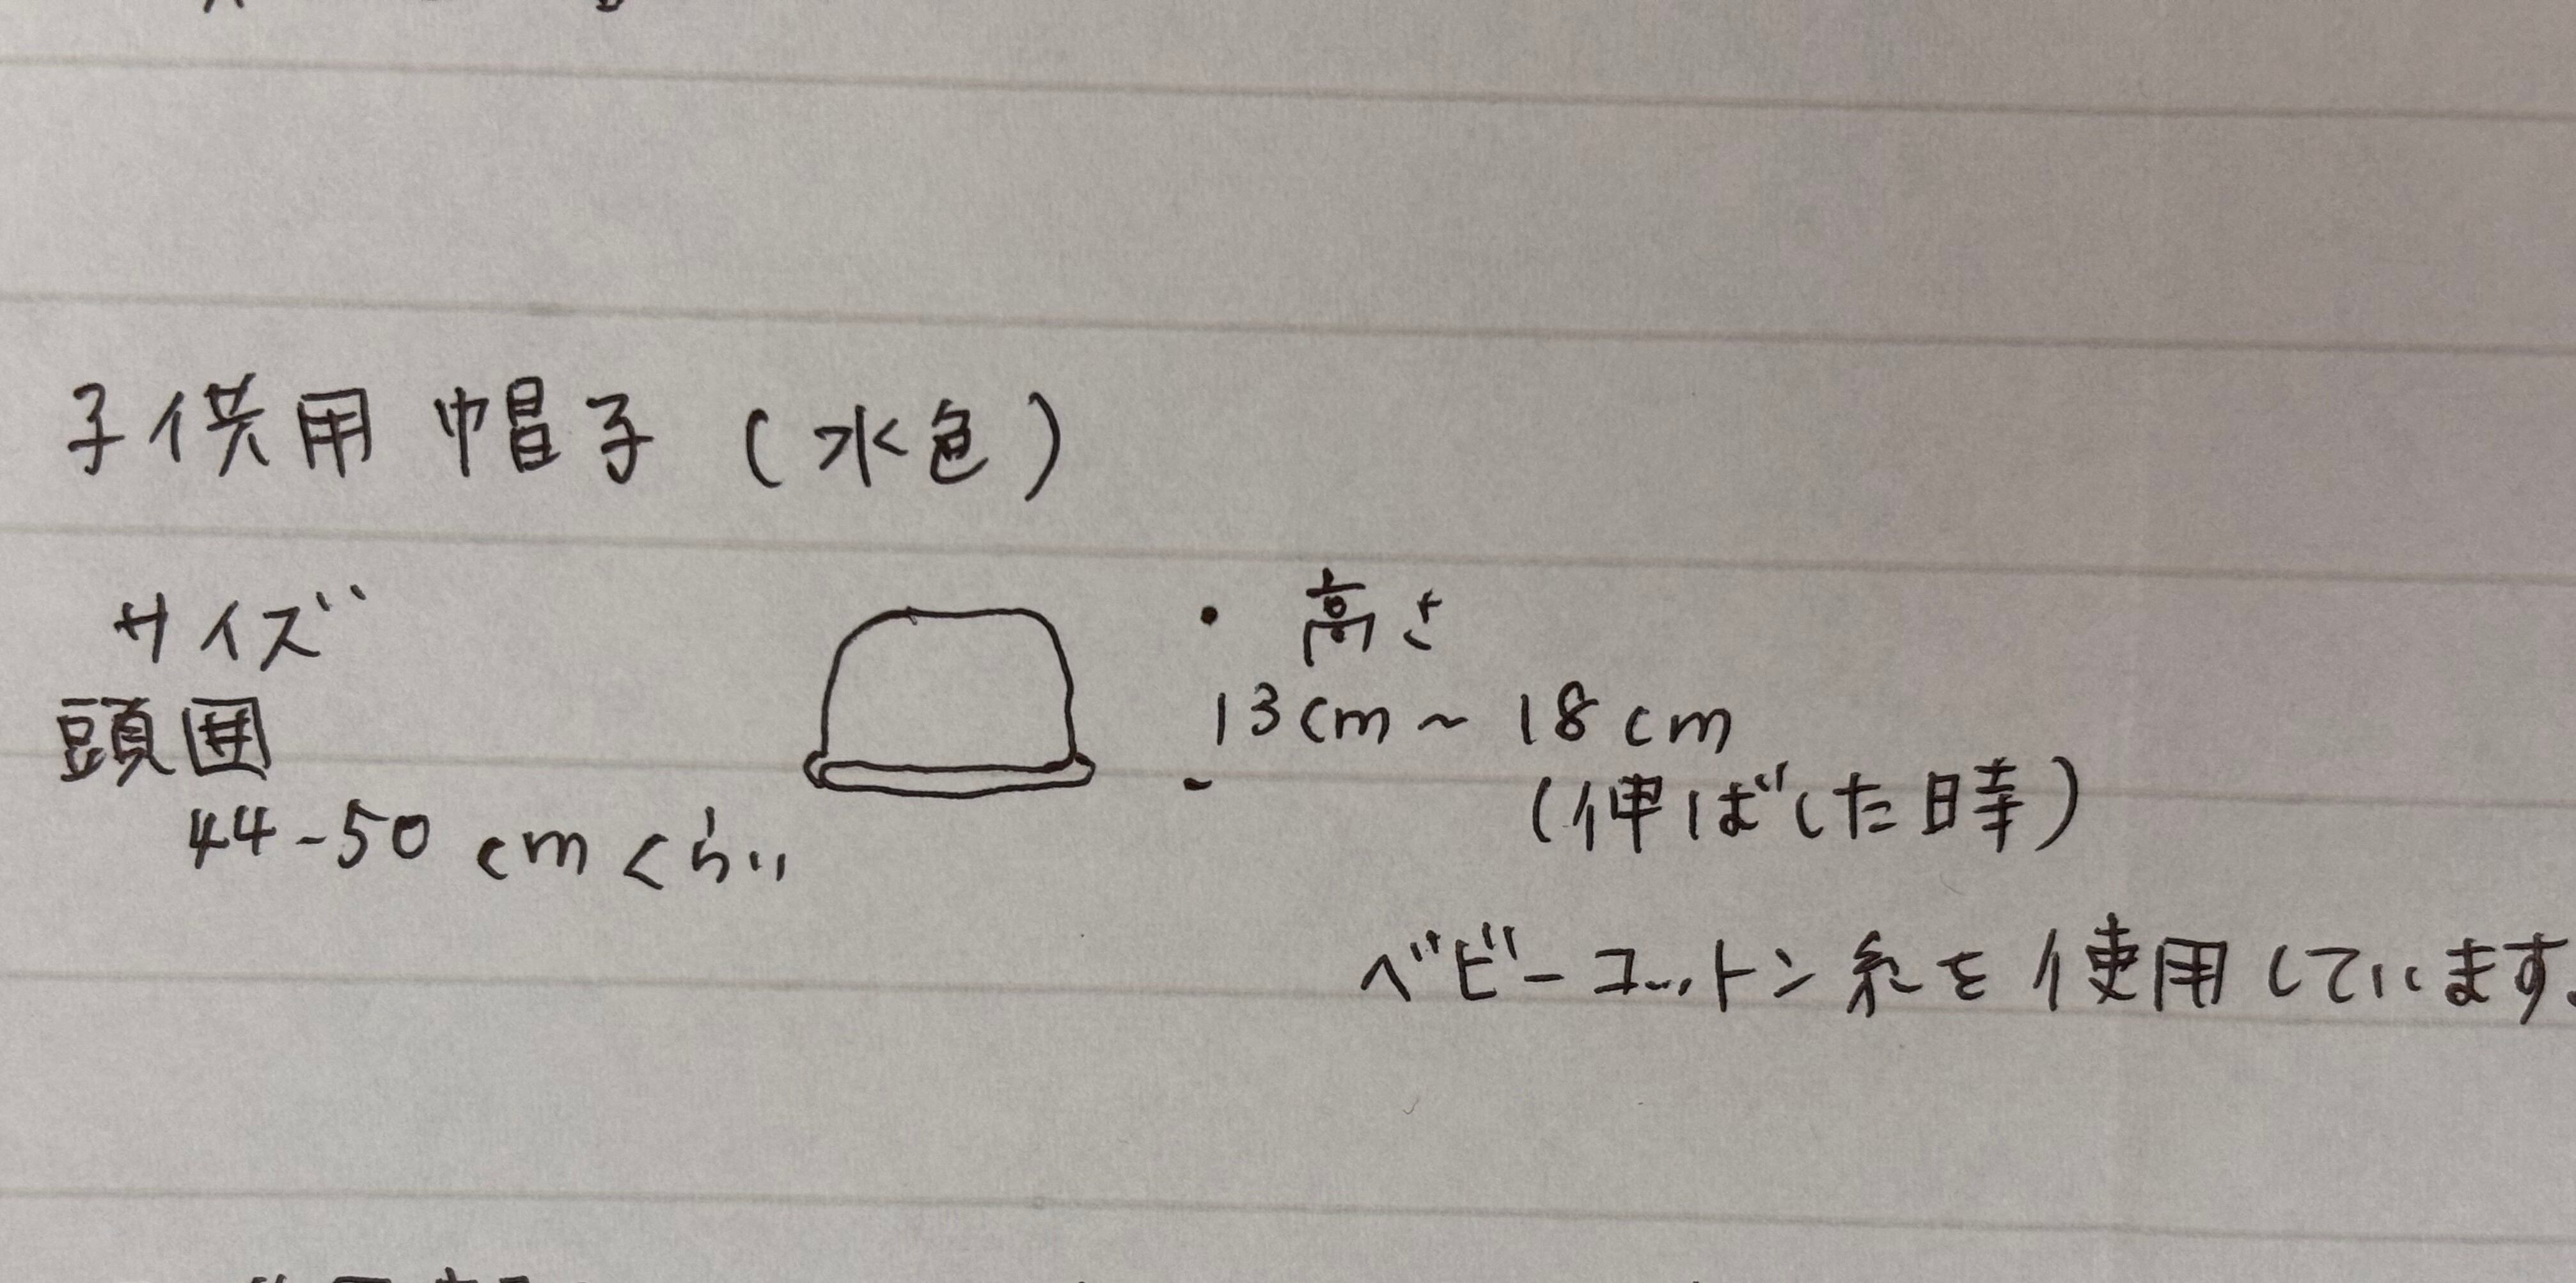 子供用 帽子 (水色)
サイズ
頭囲
44-50 cm くらい
・ 高さ
13cm~18cm
(伸ばした時)
ベビーコットン糸を使用しています.